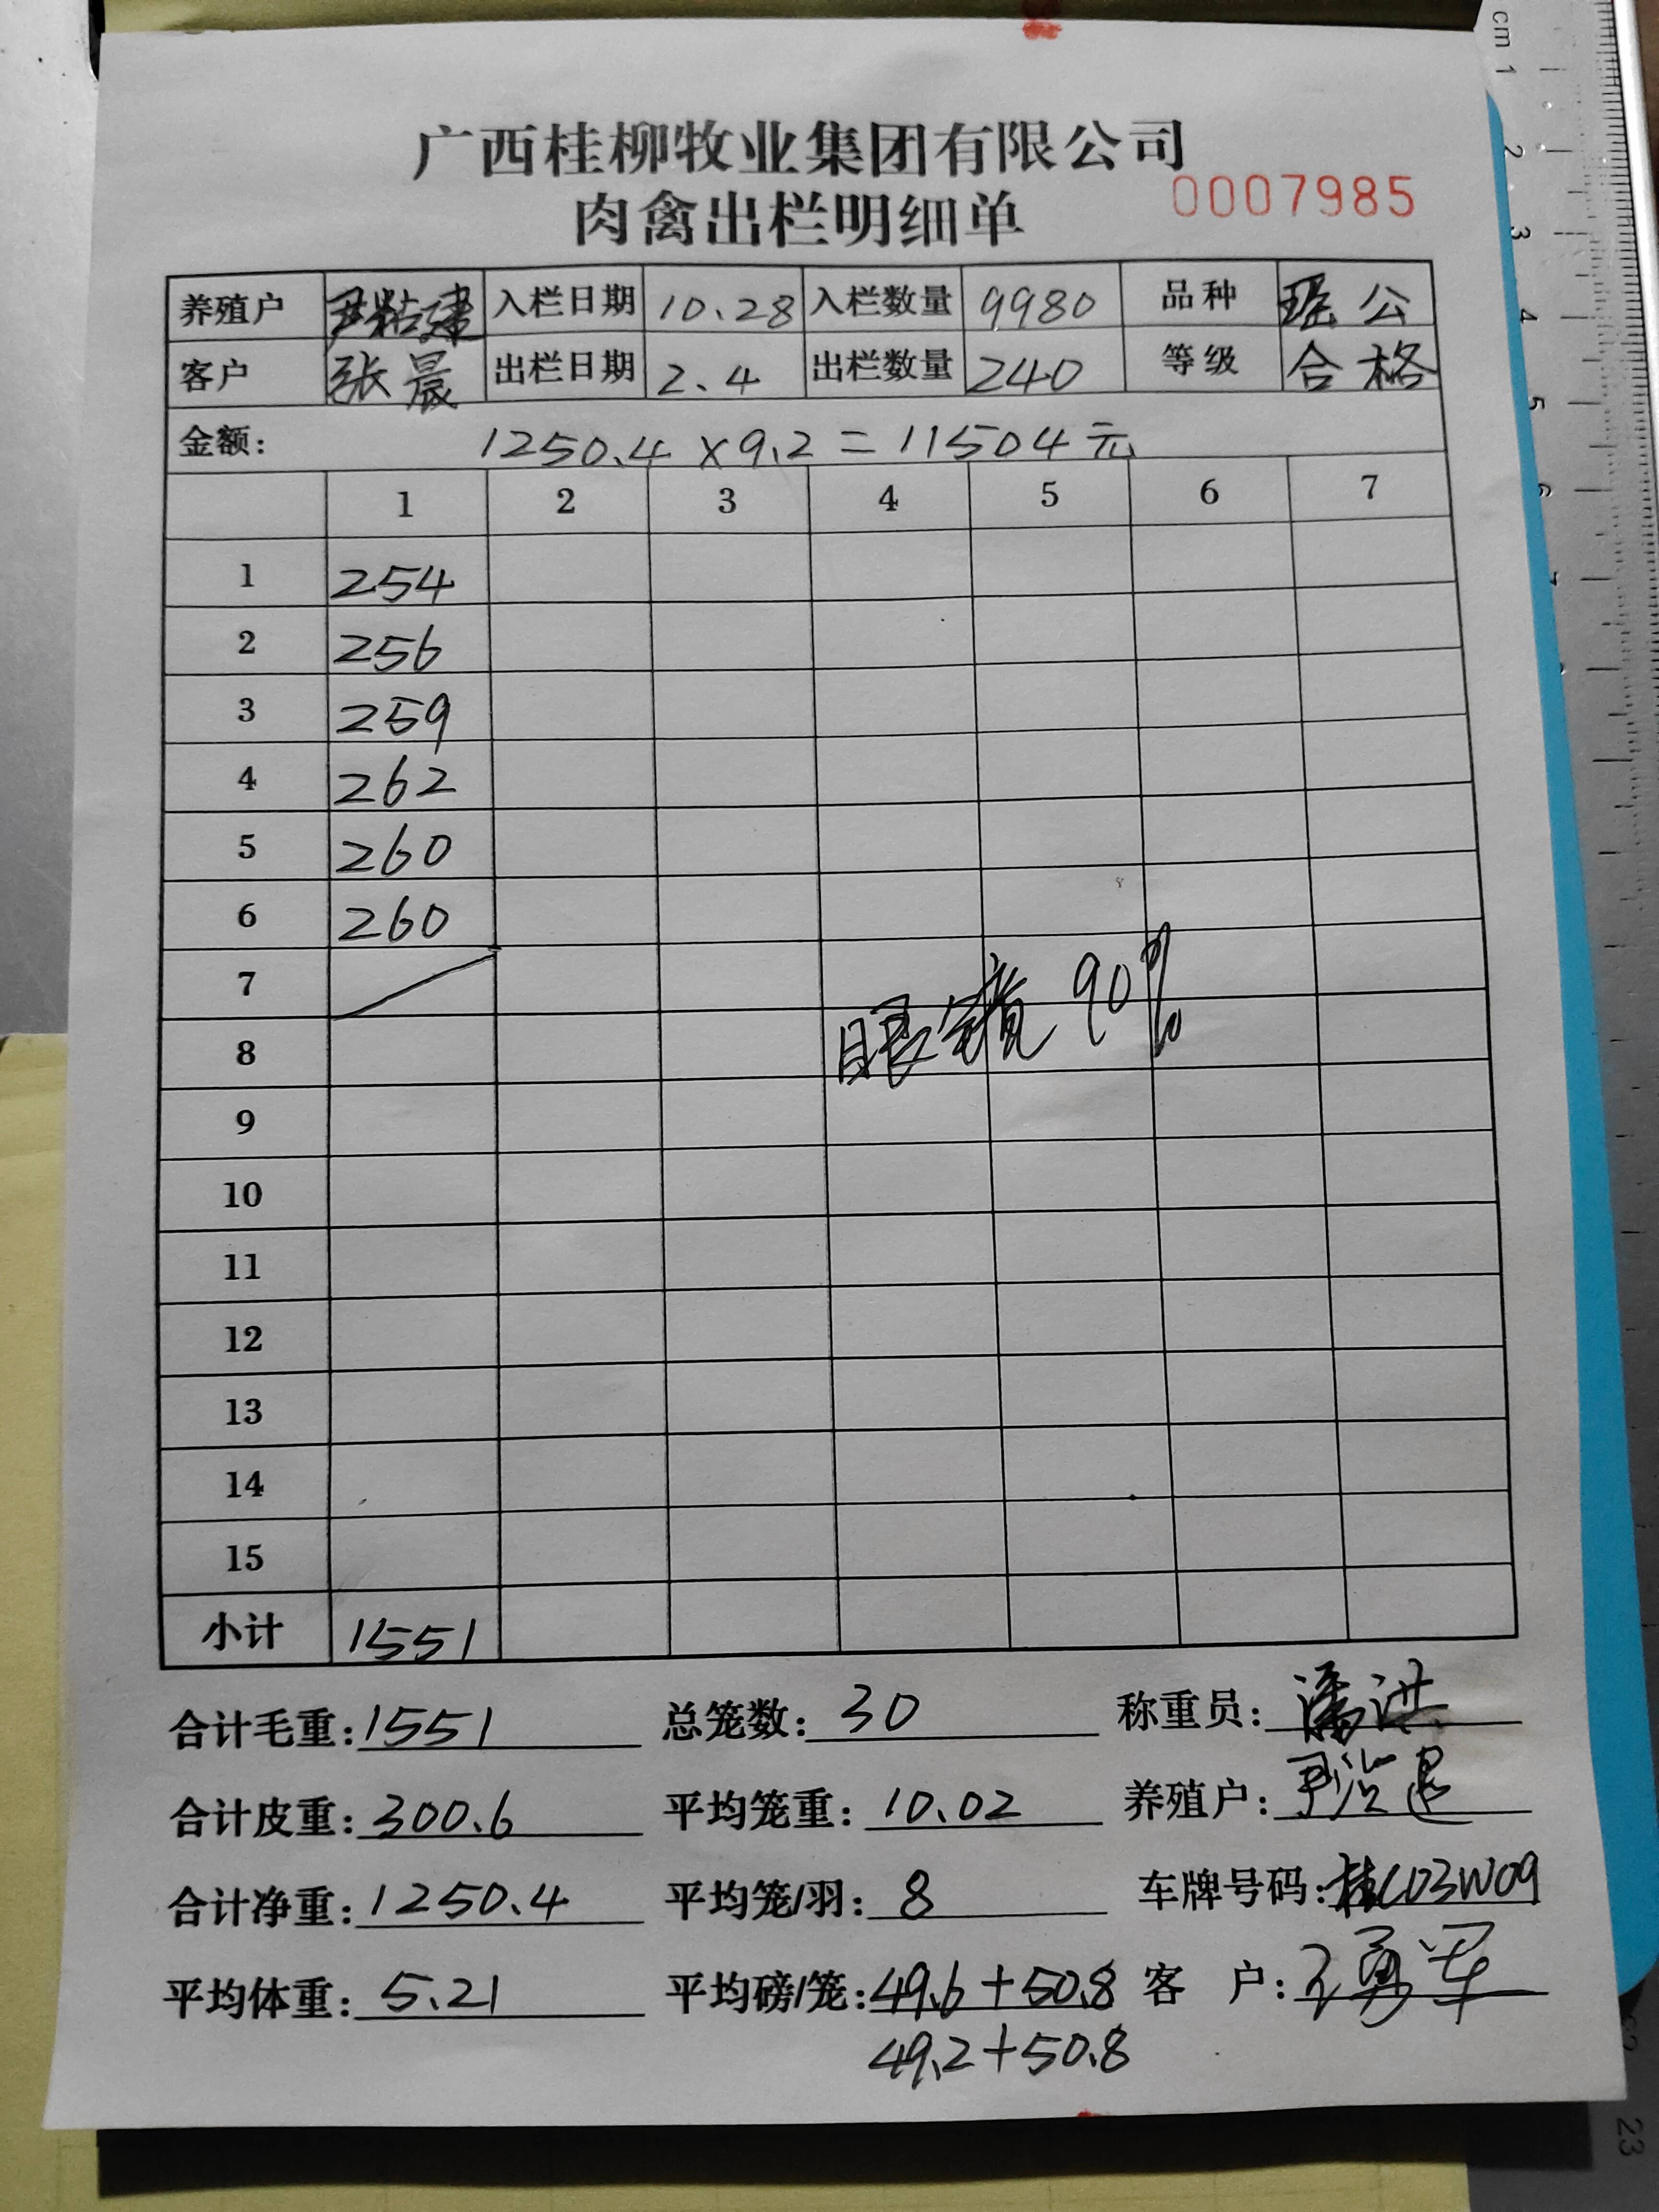 广西桂柳牧业集团有限公司
肉禽出栏明细单 0007985
养殖户 入栏日期 10.28 入栏数量 9980 品种 瑶公
客户 张晨 出栏日期 2.4 出栏数量 240 等级 合格
金额: 1250.4×9.2=11504元
1 2 3 4 5 6 7
1 254
2 256
3 259
4 262
5 260
6 260
7
8 眼镜90%
9
10
11
12
13
14
15
小计 1551
合计毛重:1551 总笼数:30 称重员:潘洪
合计皮重:300.6 平均笼重:10.02 养殖户:
合计净重:1250.4 平均笼/羽:8 车牌号码:桂C03W09
平均体重:5.21 平均磅/笼:49.6+50.8 客 户:
49.2+50.8
cm 1
2
3
4
5
6
7
23